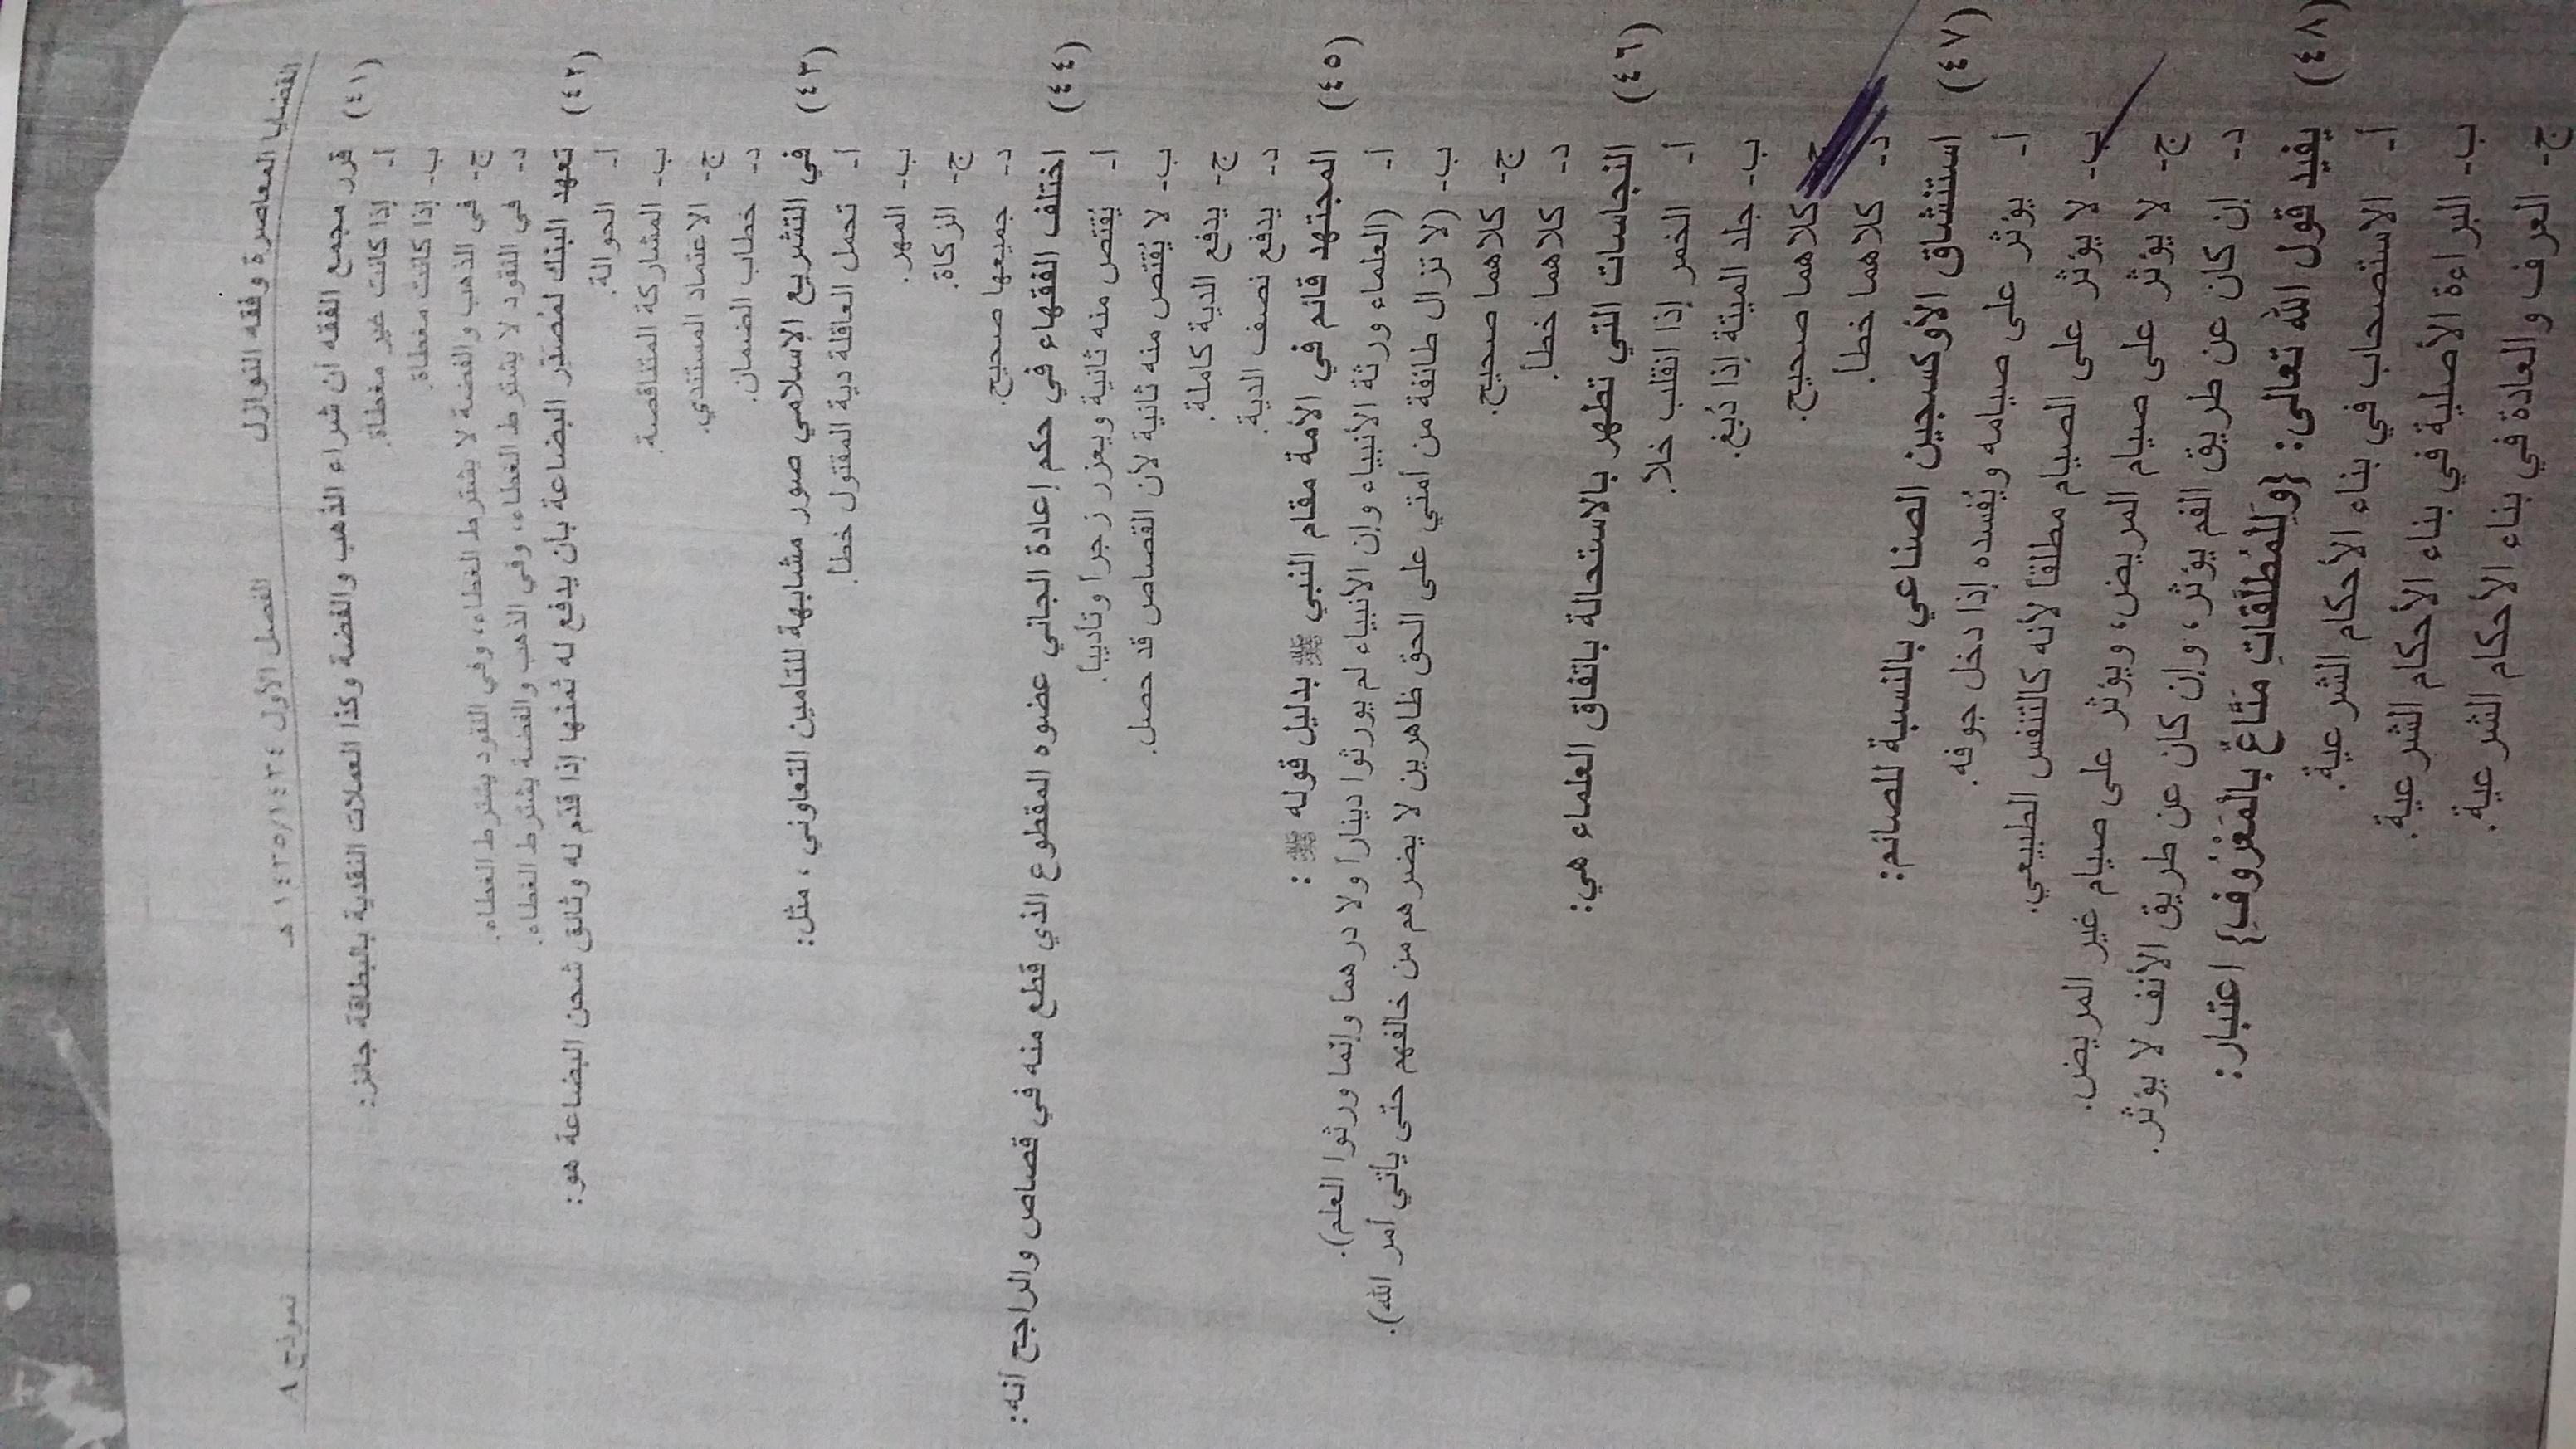 القضايا المعاصرة وفقه النوازل الفصل الأول ١٤٣٥/١٤٣٤ هـ نموذج ٨
(٤١) قرر مجمع الفقه أن شراء الذهب والفضة وكذا العملات النقدية بالبطاقة جائز:
أ- إذا كانت غير مغطاة.
ب- إذا كانت مغطاة.
ج- في الذهب والفضة لا يشترط الغطاء، وفي النقود يشترط الغطاء.
د- في النقود لا يشترط الغطاء، وفي الذهب والفضة يشترط الغطاء.
(٤٢) تعهد البنك لمُصَدّر البضاعة بأن يدفع له ثمنها إذا قدّم له وثائق شحن البضاعة هو:
أ- الحوالة.
ب- المشاركة المتناقصة.
ج- الاعتماد المستندي.
د- خطاب الضمان.
(٤٣) في التشريع الإسلامي صور مشابهة للتأمين التعاوني ، مثل:
أ- تحمل العاقلة دية المقتول خطأ.
ب- المهر.
ج- الزكاة.
د- جميعها صحيح.
(٤٤) اختلف الفقهاء في حكم إعادة الجاني عضوه المقطوع الذي قطع منه في قصاص والراجح أنه:
أ- يُقتص منه ثانية ويعزر زجراً وتأديباً.
ب- لا يُقتص منه ثانية لأن القصاص قد حصل.
ج- يدفع الدية كاملة.
د- يدفع نصف الدية.
(٤٥) المجتهد قائم في الأمة مقام النبي ﷺ بدليل قوله ﷺ :
أ- (العلماء ورثة الأنبياء وإن الأنبياء لم يورثوا ديناراً ولا درهماً وإنما ورثوا العلم).
ب- (لا تزال طائفة من أمتي على الحق ظاهرين لا يضرهم من خالفهم حتى يأتي أمر الله).
ج- كلاهما صحيح.
د- كلاهما خطأ.
(٤٦) النجاسات التي تطهر بالاستحالة باتفاق العلماء هي:
أ- الخمر إذا انقلب خلا.
ب- جلد الميتة إذا دُبغ.
ج- كلاهما صحيح.
د- كلاهما خطأ.
(٤٧) استنشاق الأوكسجين الصناعي بالنسبة للصائم:
أ- يؤثر على صيامه ويُفسده إذا دخل جوفه.
ب- لا يؤثر على الصيام مطلقاً لأنه كالتنفس الطبيعي.
ج- لا يؤثر على صيام المريض، ويؤثر على صيام غير المريض.
د- إن كان عن طريق الفم يؤثر، وإن كان عن طريق الأنف لا يؤثر.
(٤٨) يفيد قول الله تعالى: {وَلِلْمُطَلَّقَاتِ مَتَاعٌ بِالْمَعْرُوفِ} اعتبار:
أ- الاستصحاب في بناء الأحكام الشرعية.
ب- البراءة الأصلية في بناء الأحكام الشرعية.
ج- العرف والعادة في بناء الأحكام الشرعية.